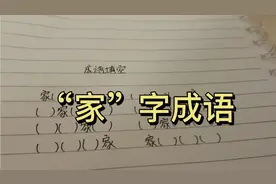 成语填空
家(
“家”字成语
( )( )家( )
( )( )( )家 家( )( )( )